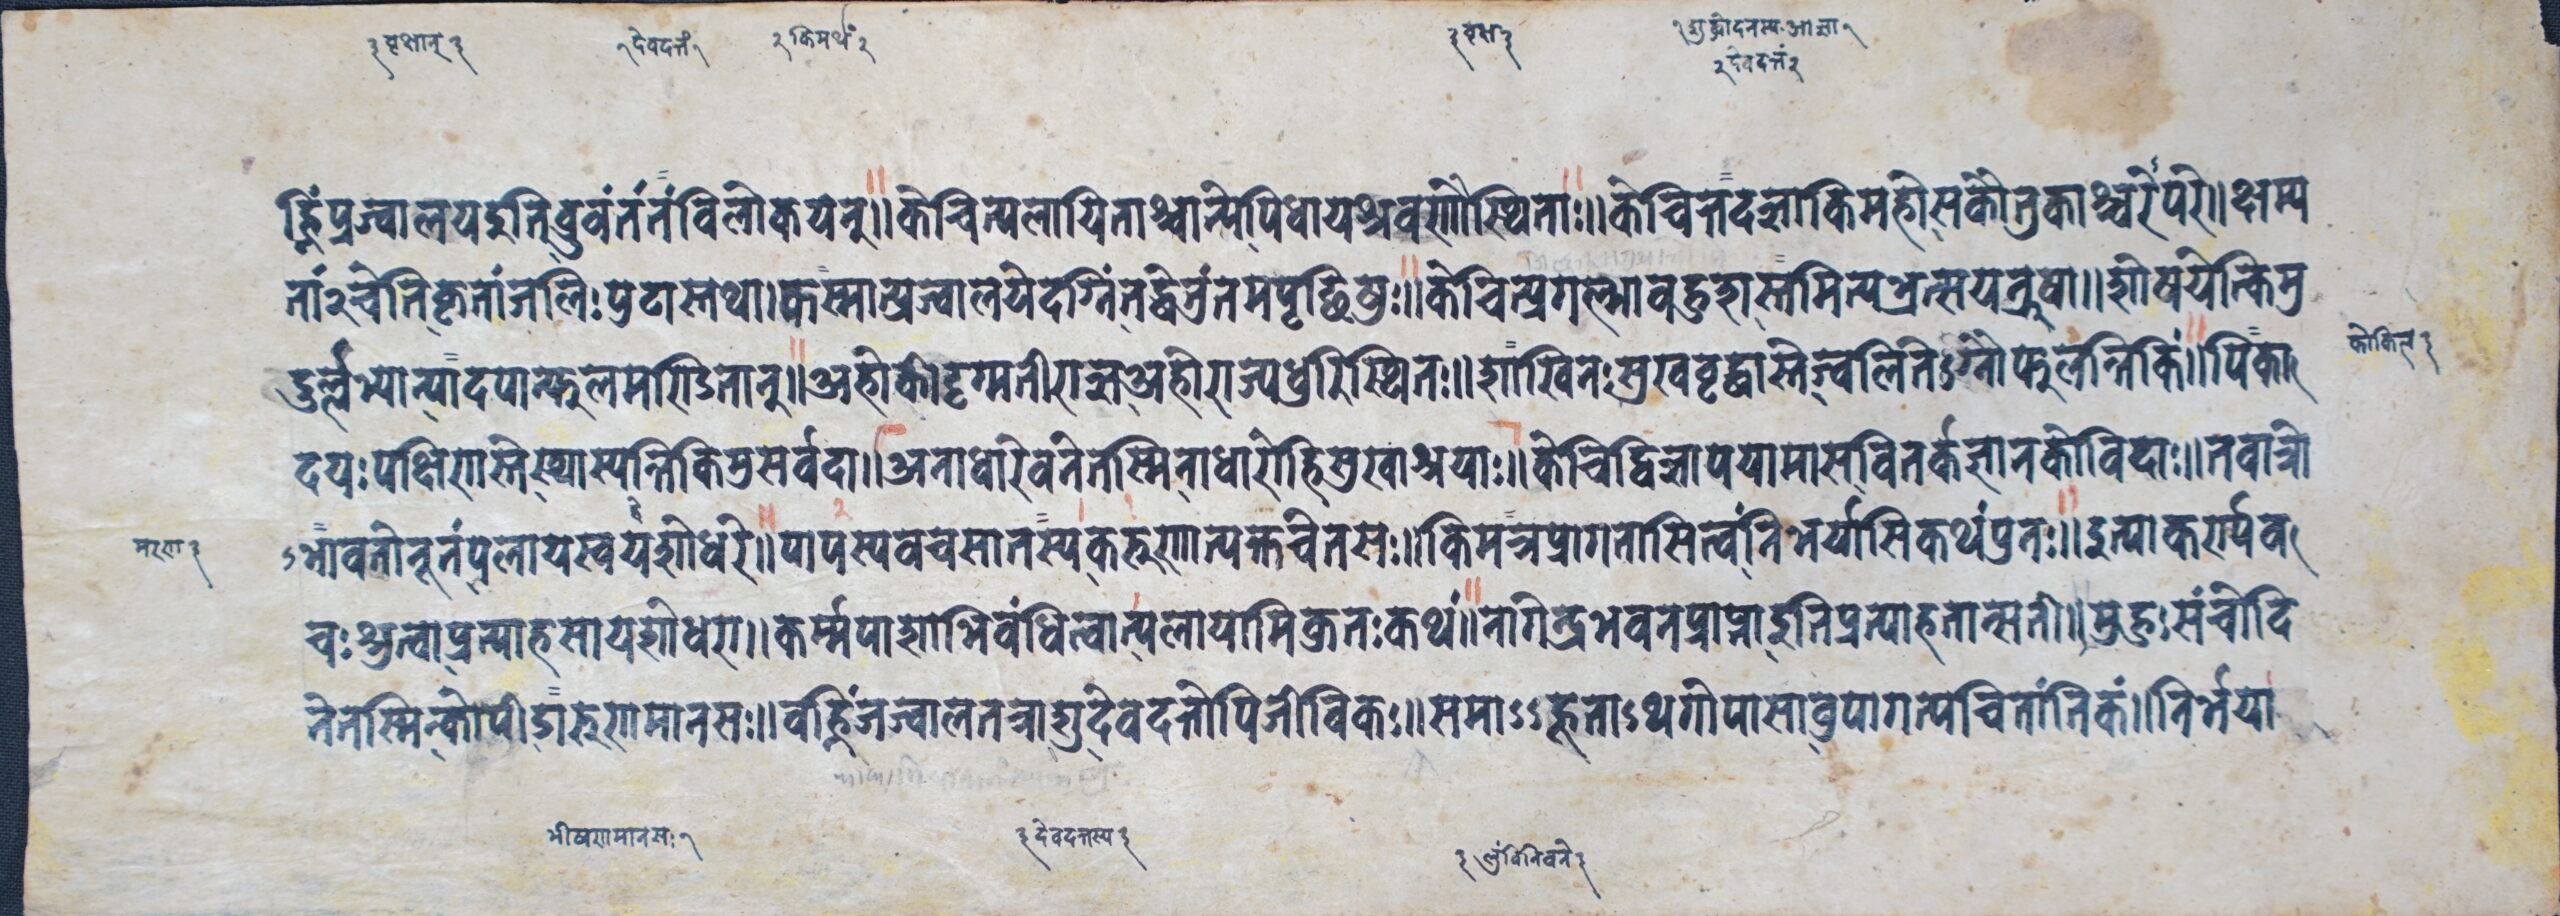 ३ वृक्षान् ३ १ देवदत्तं १ २ किमर्थं २ ३ वृक्ष ३ १ शुद्धोदनस्य आज्ञा १
२ देवदत्तं २
ह्निं प्रज्वालयइति ब्रुवंतं तं विलोकयन्॥ केचित्पलायिताश्चान्ये पिधाय श्रवणौ स्थिताः॥ केचित्तदज्ञा किमहो सकौतुकाश्च रेपरे॥ क्षम्य
तां २ चेति कृतांजलिः पुटास्तथा। कस्मात्प्रज्वालयेदग्निं तद्धेतुं तमपृछिषुः॥ केचित्प्रगल्भा बहुशस्तमित्यभर्त्सयन्रुषा॥ शोषयेत्किमु
दुर्ल्लभ्यान्पादपान्फुलमण्डितान्॥ अहो कीदृग्मती राज्ञ अहो राज्यधुरि स्थितः॥ शाखिनः सुखवृद्धास्ते ज्वलितेऽग्नौ फुलेन्ति किं॥ पिका
कोकिल ३
दयः पक्षिणस्ते स्थास्यन्ति किमु सर्वदा॥ अनाधारे वने तस्मिनाधारो हि सुखाश्रयाः॥ केचिद्विज्ञापयामास वितर्कज्ञानकोविदाः॥ तवात्रो
मरण ३
ऽभावतो नूनं पलायेस्व यशोधरे॥ पापस्य वचसा तस्य करुणात्यक्तचेतसः॥ किमत्र प्रागतासि त्वं निर्भयासि कथं पुनः॥ इत्याकर्ण्य व
चः श्रुत्वा प्रत्याह सा यशोधरा॥ कर्म्मपाशाभिबंधित्वात्पलायामि कुतः कथं॥ नागेन्द्रभवनप्राप्ता इति प्रत्याह तान्सती॥ मुहुः संचोदि
ते तस्मिन्कोपीद्दारुणमानसः॥ वह्निं जज्वाल तत्राशु देवदत्तोपिजीविकः॥ समाऽऽहूताऽथ गोपा साबुपागत्य चितांतिकं॥ निर्भया
भीषणमानसः १ ३ देवदत्तस्य ३ ३ लुंबिनिवने ३